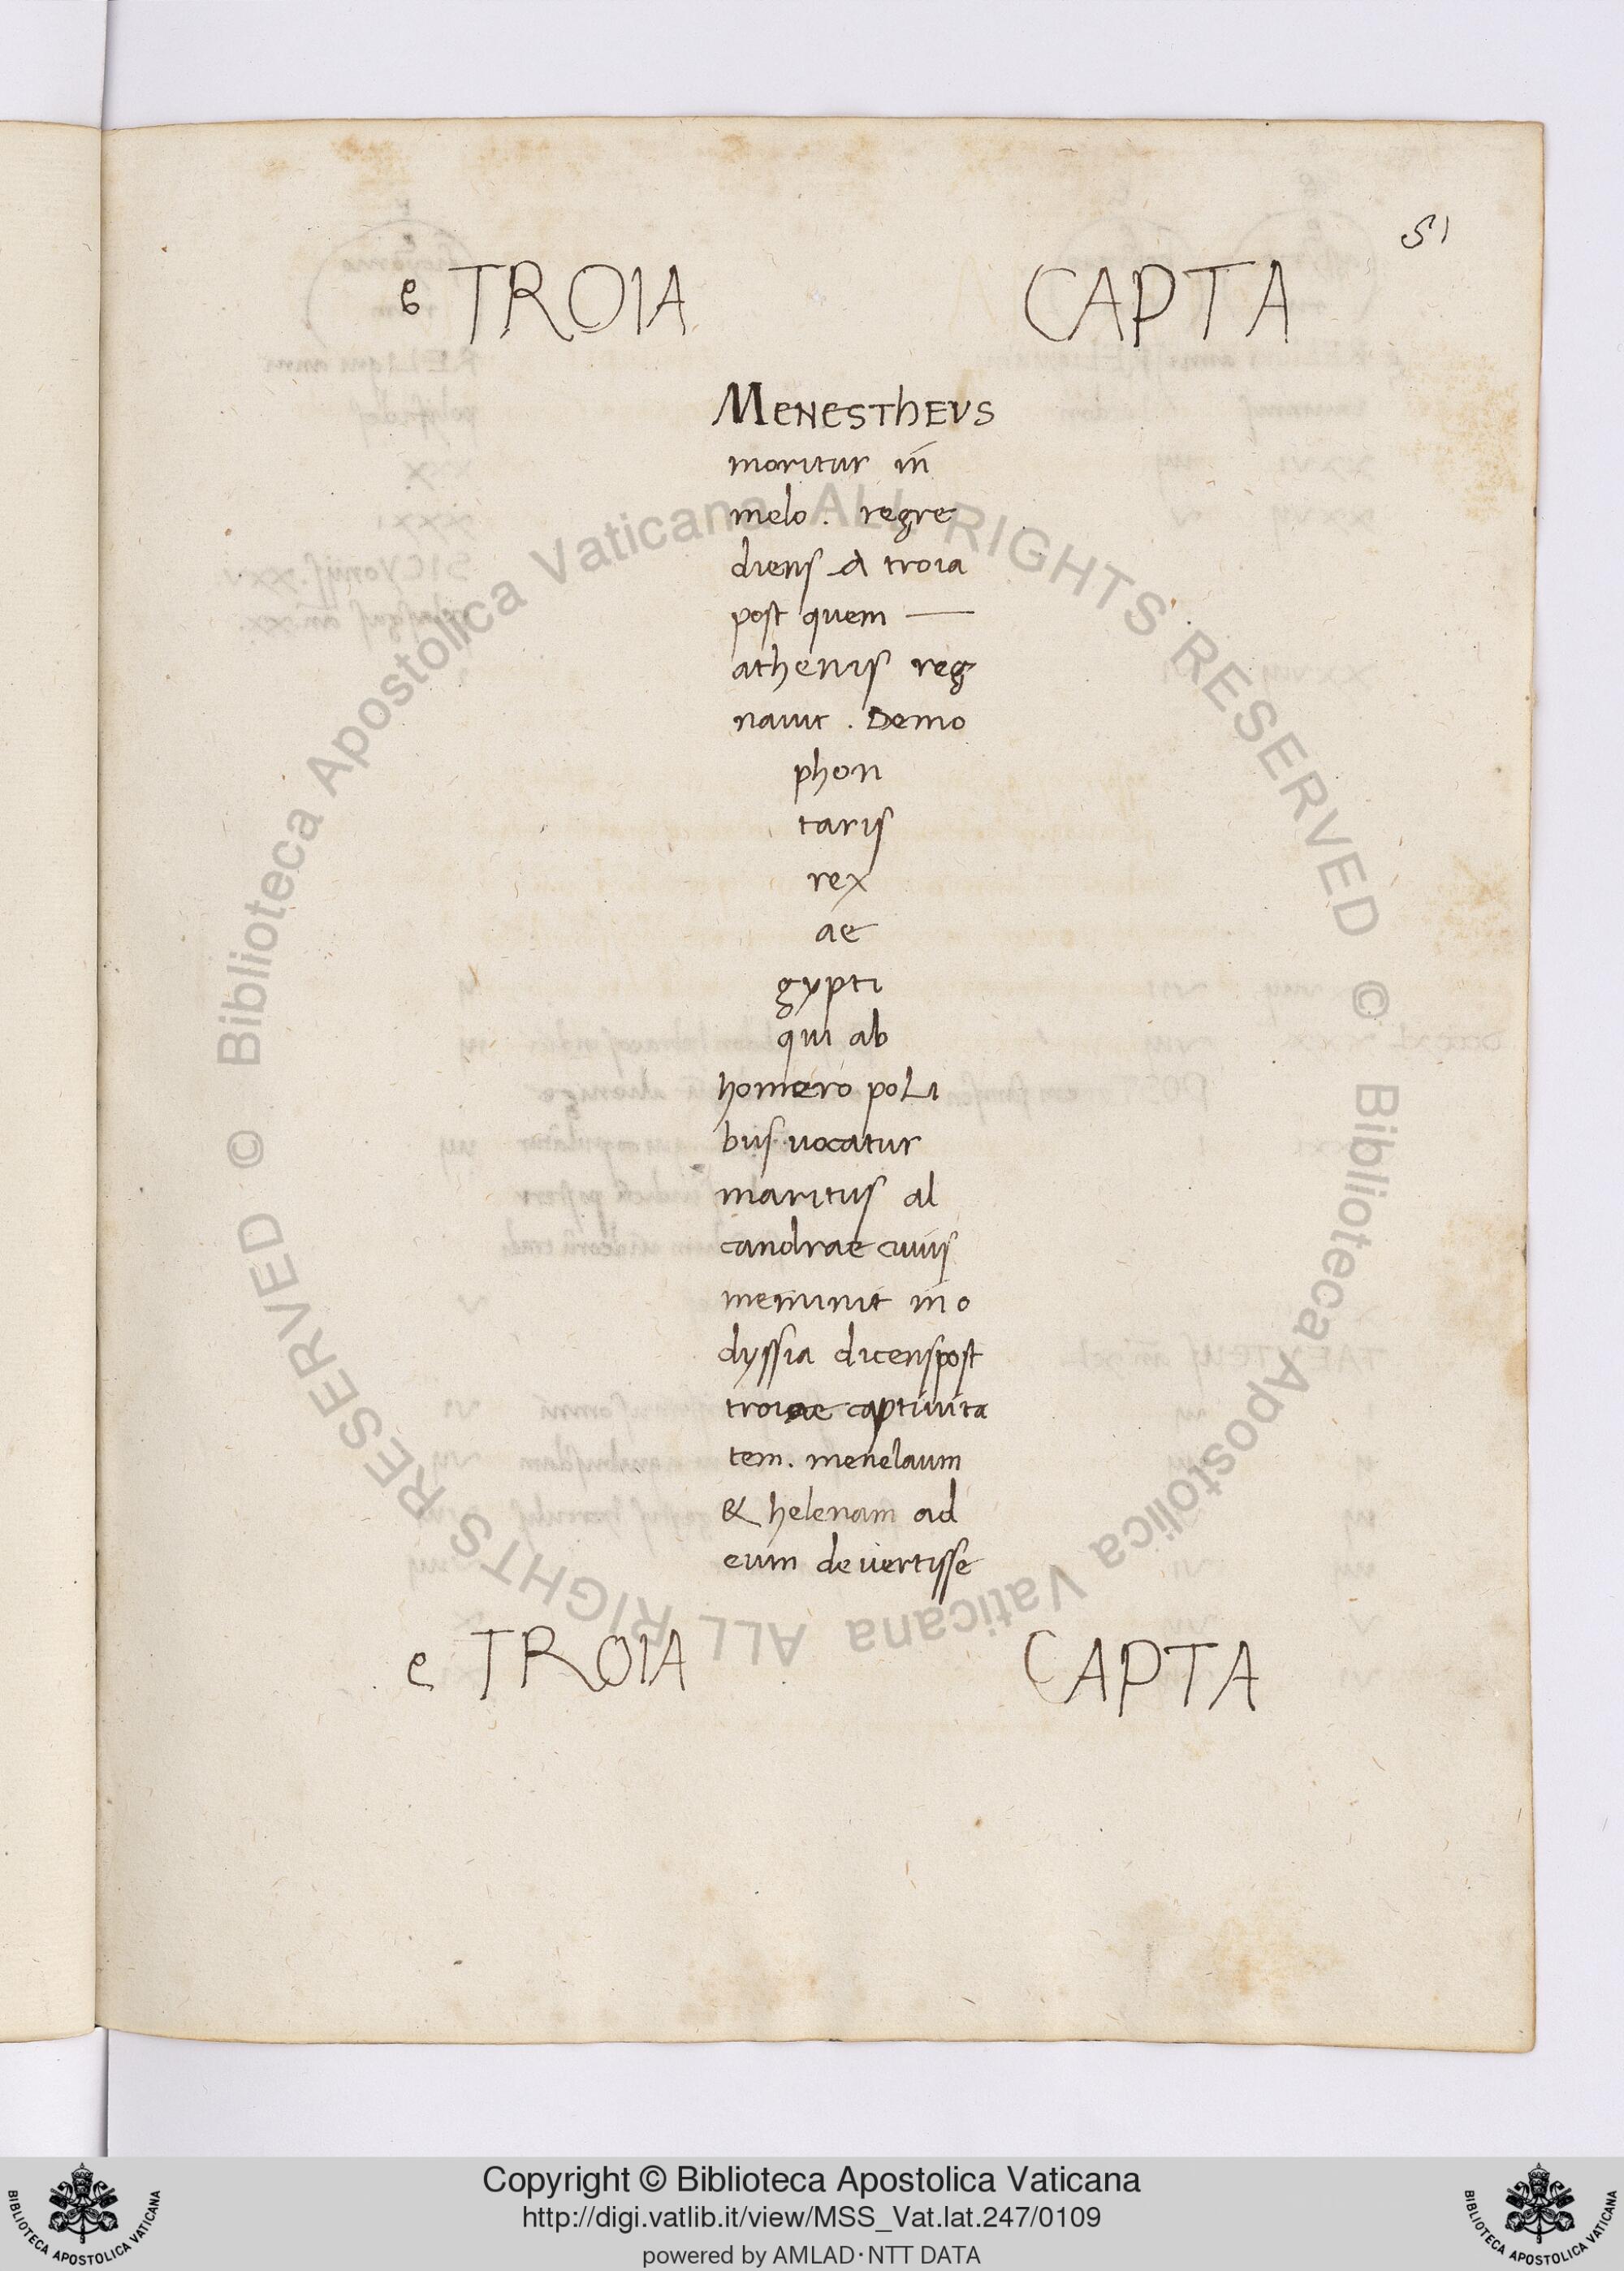 51
e TROIA CAPTA
MENESTHEVS
moritur in
melo . regre
diens a troia
post quem —
athenis reg
nauit . Demo
phon
taris
rex
ae
gypti
qui ab
homero poli
bus uocatur
maritus al
candrae cuius
meminit in o
dyssia dicens post
troiae captiuita
tem . menelaum
& helenam ad
eum deuertisse
e TROIA CAPTA
© Biblioteca Apostolica Vaticana ALL RIGHTS RESERVED
© Biblioteca Apostolica Vaticana ALL RIGHTS RESERVED
Copyright © Biblioteca Apostolica Vaticana
http://digi.vatlib.it/view/MSS_Vat.lat.247/0109
powered by AMLAD·NTT DATA
BIBLIOTECA APOSTOLICA VATICANA
BIBLIOTECA APOSTOLICA VATICANA